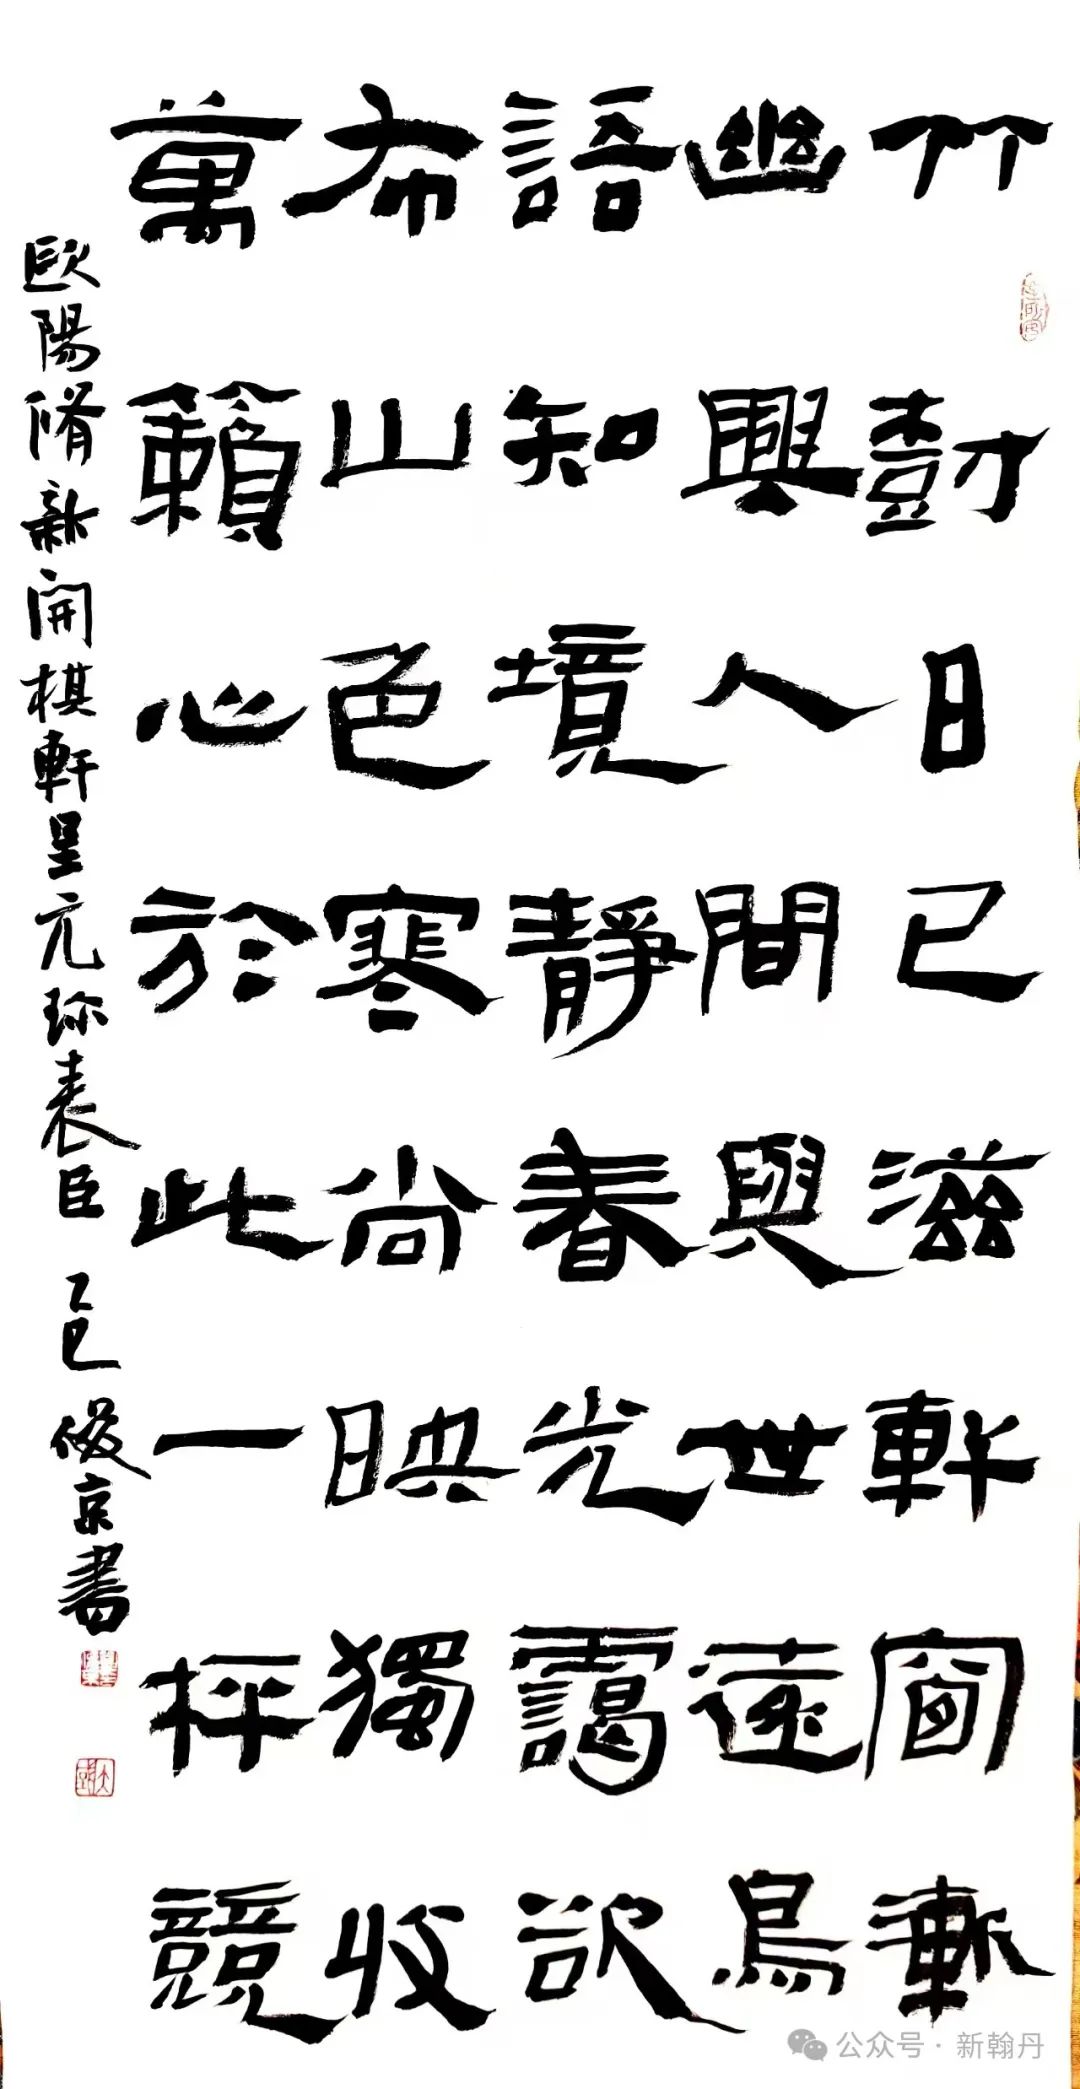 竹樹日已滋軒窗漸
幽興人間與世遠鳥
語知境靜春光靄欲
布山色寒尚映獨收
萬籟心於此一枰競
歐陽脩新開棋軒呈元珍表臣 乙巳俊京書
公众号 · 新翰丹